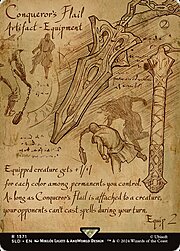 Conqueror's Flail
2
Artifact - Equipment
Equipped creature gets +1/+1
for each color among permanents you control.
As long as Conqueror's Flail is attached to a creature,
your opponents can't cast spells during your turn.
Equip 2
R 1571
SLD • EN
& © 2024 Wizards of the Coast
© Ubisoft